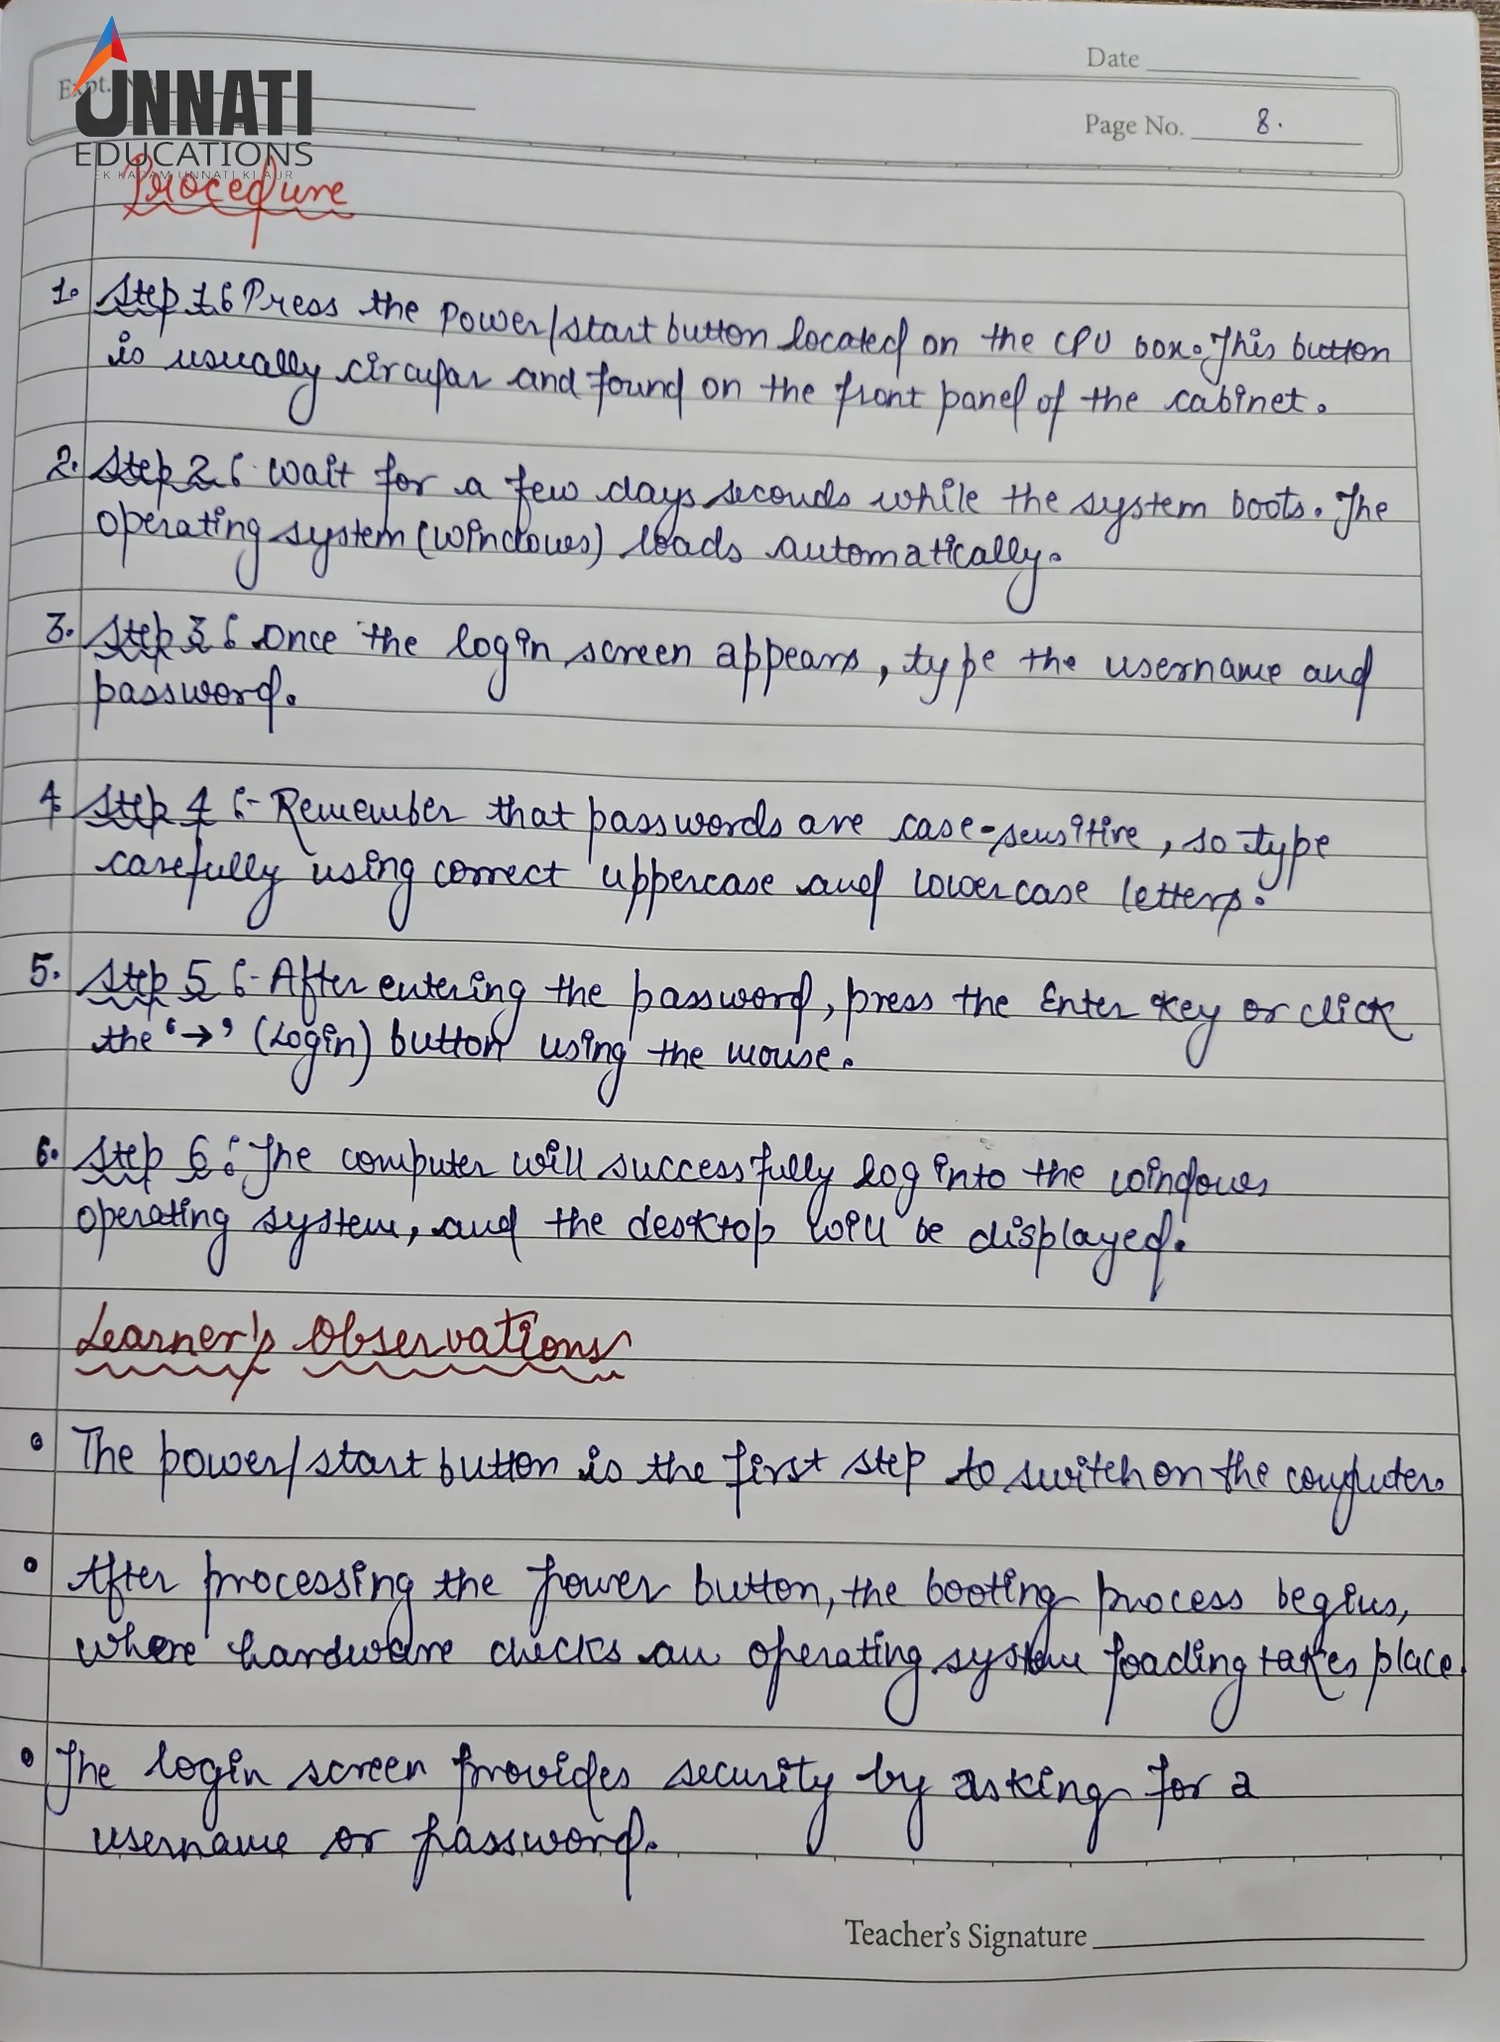 Date
UNNATI
EDUCATIONS
EK KADAM UNNATI KI AUR
Expt.
Page No. 8.
Procedure
1. Step 1: Press the Power/start button located on the CPU box. This button
is usually circular and found on the front panel of the cabinet.
2. Step 2: Wait for a few days seconds while the system boots. The
operating system (Windows) loads automatically.
3. Step 3: Once the login screen appears, type the username and
password.
4. Step 4:- Remember that passwords are case-sensitive, so type
carefully using correct uppercase and lowercase letters.
5. Step 5:- After entering the password, press the Enter key or click
the '→' (Login) button using the mouse.
6. Step 6: The computer will successfully log into the windows
operating system, and the desktop will be displayed.
Learner's Observations
The power/start button is the first step to switch on the computer.
After processing the power button, the booting process begins,
where hardware checks an operating system loading takes place.
The login screen provides security by asking for a
username or password.
Teacher's Signature